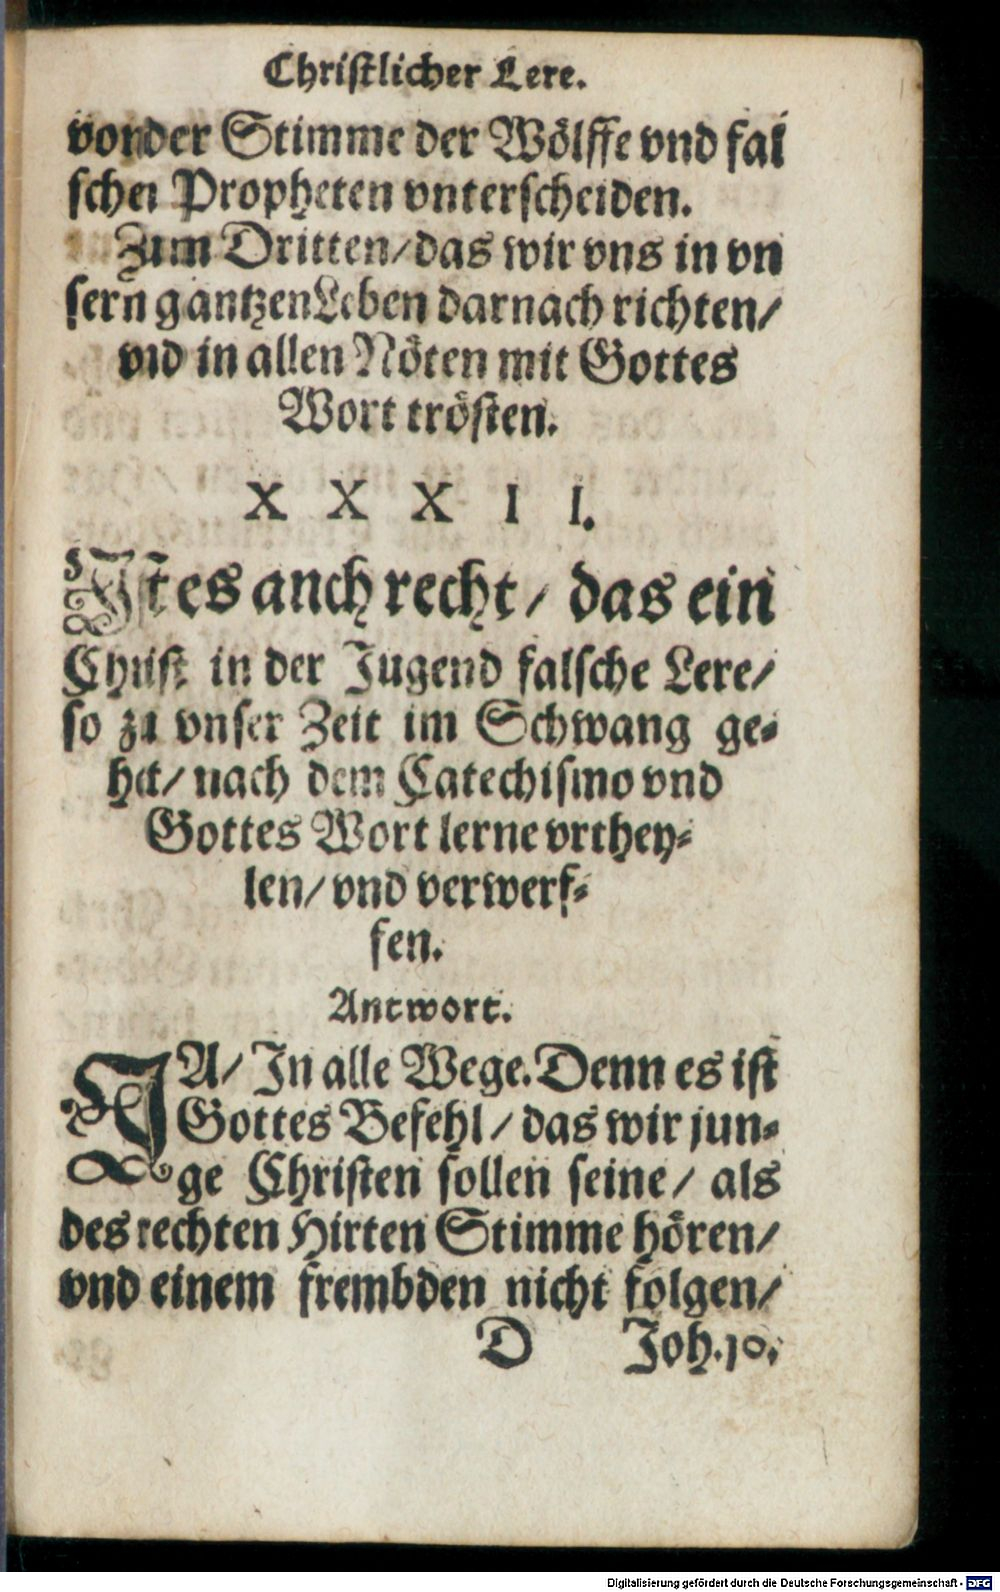 Christlicher Lere.
von der Stimme der Wölffe vnd fal
scher Propheten vnterscheiden.
Zum Dritten/ das wir vns in vn
sern gantzen Leben darnach richten/
vnd in allen Nöten mit Gottes
Wort trösten.
X X X I I.
Ist es anch recht/ das ein
Christ in der Jugend falsche Lere/
so zu vnser Zeit im Schwang ge-
het/ nach dem Catechismo vnd
Gottes Wort lerne vrthey-
len/ vnd verwerf-
fen.
Antwort.
JA/ In alle Wege. Denn es ist
Gottes Befehl/ das wir jun-
ge Christen sollen seine/ als
des rechten Hirten Stimme hören/
vnd einem frembden nicht folgen/
D Joh. 10.
Digitalisierung gefördert durch die Deutsche Forschungsgemeinschaft - DFG